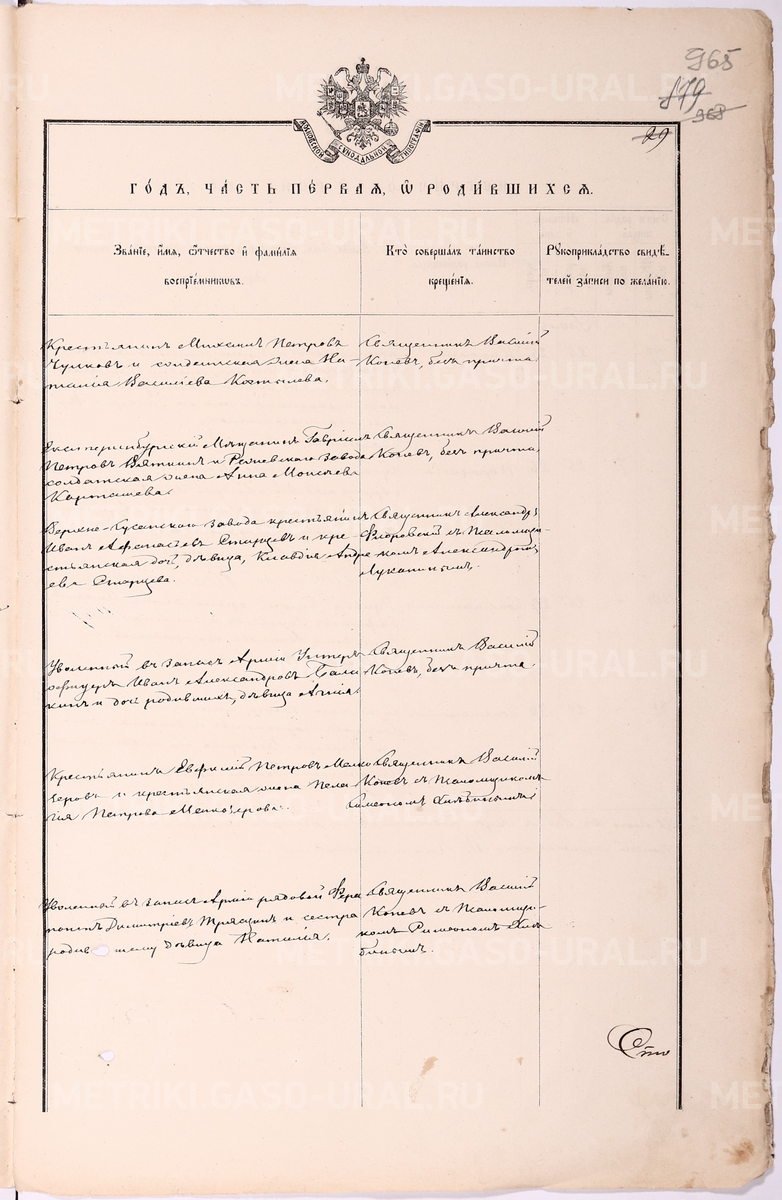 965
179
968
29
МОСКОВСКОЙ СѴНОДАЛЬНОЙ ТИПОГРАФІИ
ГО́ДЪ, ЧА́СТЬ ПЕ́РВАЯ, Ѡ҆ РОДИ́ВШИХСЯ.
Зва́нїе, и҆́мѧ, ѻ҆́тчество и҆ фами́лїѧ
воспрїе́мникѡвъ.
Кто̀ соверша́лъ та́инство
креще́нїѧ.
Рꙋкоприкла́дство свидѣ́-
телей за́писи по жела́нїю.
Крестьянинъ Михаилъ Петровъ
Чулковъ и солдатская жена На-
талія Васильева Костылева.
Священникъ Василій
Копевъ, безъ причта.
Екатеринбургскій Мѣщанинъ Гавріилъ
Петровъ Вяткинъ и Режевскаго завода
солдатская жена Анна Моисеева
Карташева.
Священникъ Василій
Копевъ, безъ причта,
Верхне-Исетскаго завода крестьянинъ
Иванъ Афанасьевъ Старцевъ и кре-
стьянская дочь, дѣвица, Клавдія Андре
ева Старцева.
Священникъ Александръ
Флоровскій съ Псаломщи-
комъ Александромъ
Луканинымъ.
Уволенный въ запасъ Арміи Унтеръ
офицеръ Иванъ Александровъ
и дочь родившихъ, дѣвица
Священникъ Василій
Копевъ, безъ причта.
Крестьянинъ Евфимій Петровъ Мелко
зеровъ и крестьянская жена Пела
гія Петрова Мелкозерова.
Священникъ Василій
Копевъ съ Псаломщикомъ
Симеономъ Хлѣбинымъ
Уволенный въ запасъ Арміи рядовой Фера
понтъ Димитріевъ Трясцинъ и сестра
родив шему дѣвица Наталія.
Священникъ Василій
Копевъ съ Псаломщи-
комъ Симеономъ Хлѣ
бинымъ.
METRIKI.GASO-URAL.RU